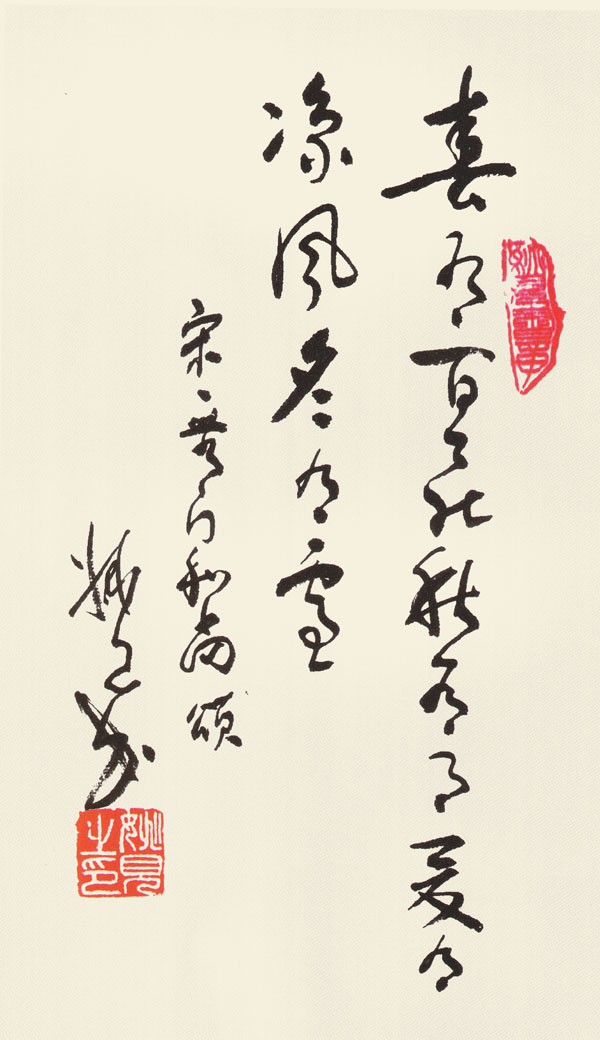 春有百花秋有月夏有
涼風冬有雪
宋無門和尚頌